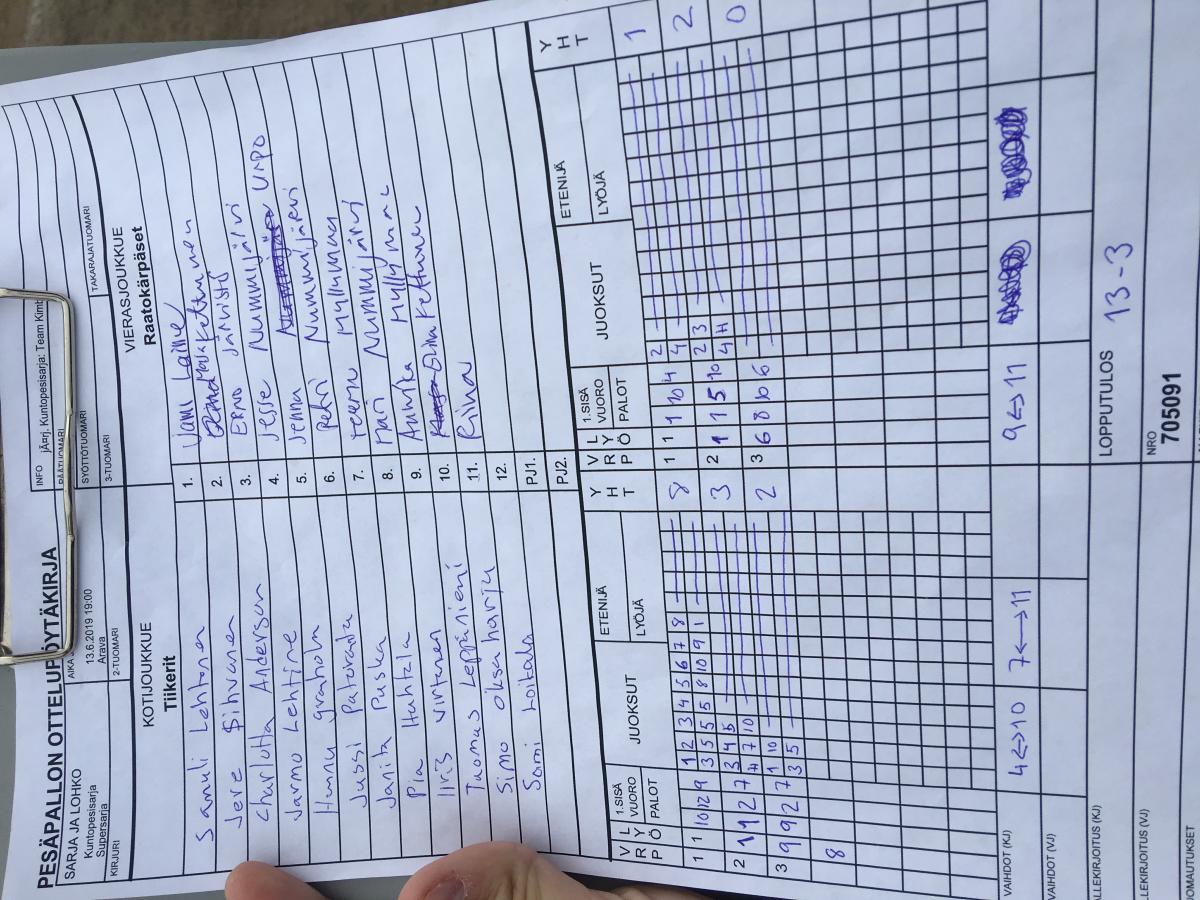 PESÄPALLON OTTELUPÖYTÄKIRJA
SARJA JA LOHKO
Kuntopesisarja
Supersarja
KIRJURI
AIKA
13.6.2019 19:00
Arava
2-TUOMARI
INFO jÄ¤rj. Kuntopesisarja: Team Kimb
PÄÄTUOMARI
SYÖTTÖTUOMARI
3-TUOMARI
TAKARAJATUOMARI
KOTIJOUKKUE
Tiikerit
VIERASJOUKKUE
Raatokärpäset
Samuli Lehtonen 1. Vami Laine
Jere Sihvonen 2. Kettunen
Charlotta Anderson 3. Erno Järvistö
Jarmo Lehtine 4. Jesse Nummijärvi
Hannu Graholm 5. Jenna UNPO
Jussi Patovada 6. Petri Nummijärvi
Janita Puska 7. Teemu Myllymaa
Pia Huhtala 8. Mari Nummijärvi
Iiris Virtanen 9. Annika Myllymac
Tuomas Leppäniemi 10. Elina Kettunen
Simo Oksaharju 11. Riina
Sami Loikala 12.
PJ1.
PJ2.
V R P L Y Ö 1.SISÄ VUORO PALOT JUOKSUT ETENIJÄ LYÖJÄ Y H T V R P L Y Ö 1.SISÄ VUORO PALOT JUOKSUT ETENIJÄ LYÖJÄ Y H T
1 1 10 12 9 1 2 3 4 5 6 7 8 8 1 1 1 10 4 2 1
3 5 5 5 8 10 9 1 4
2 11 12 7 3 4 5 3 2 1 1 5 10 2 3 2
4 7 10 4 11
3 9 9 2 7 1 10 2 3 6 8 10 6 0
3 5
8
VAIHDOT (KJ) 4<->10 7<->11 9<->11
VAIHDOT (VJ)
ALLEKIRJOITUS (KJ) LOPPUTULOS 13-3
ALLEKIRJOITUS (VJ) NRO
705091
HUOMAUTUKSET